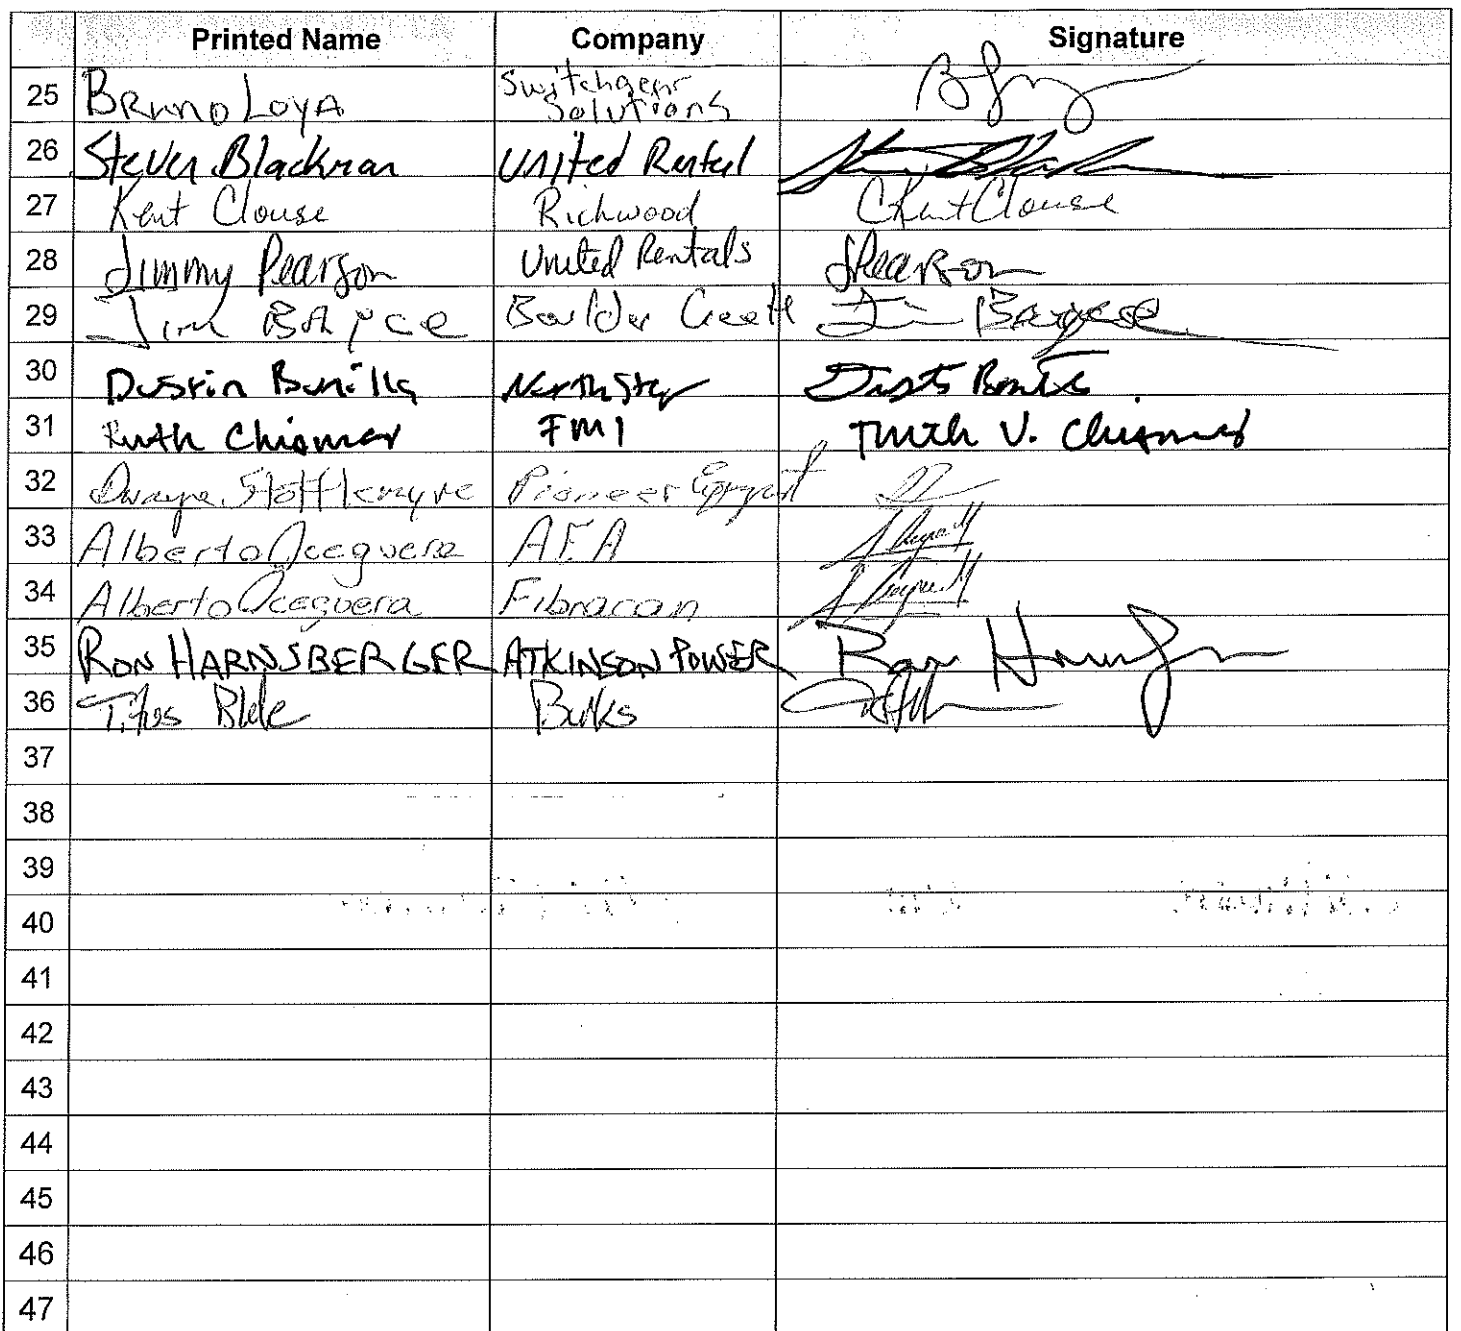 Printed Name Company Signature
25 Bruno Loya Switchgear Solutions
26 Steven Blackman United Rental
27 Kent Clouse Richwood CKent Clouse
28 Jimmy Pearson United Rentals JPearson
29 Jim Bayce Boulder Creek Jim Bayce
30 Dustin Bonilla NorthStar
31 Ruth Chiomar FMI Ruth V.
32 Dwayne Stofflemyre Pioneer
33 Alberto Oceguera AEA
34 Alberto Oceguera Fibracan
35 RON HARNSBERGER ATKINSON POWER Ron
36 Titus
37
38
39
40
41
42
43
44
45
46
47